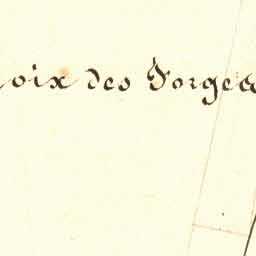 oix des Forges